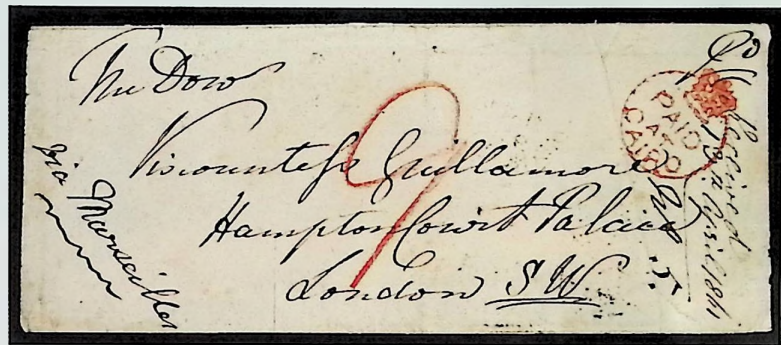 The Dow
Viscountess Guillamore
Hampton Court Palace
London SW
via Marseilles
9
PAID
AT
CAIRO
Received
April 1861